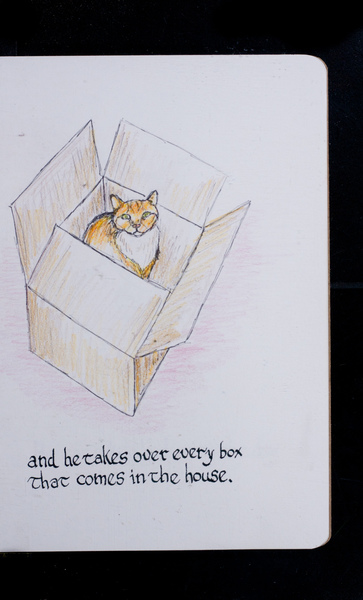 and he takes over every box
that comes in the house.